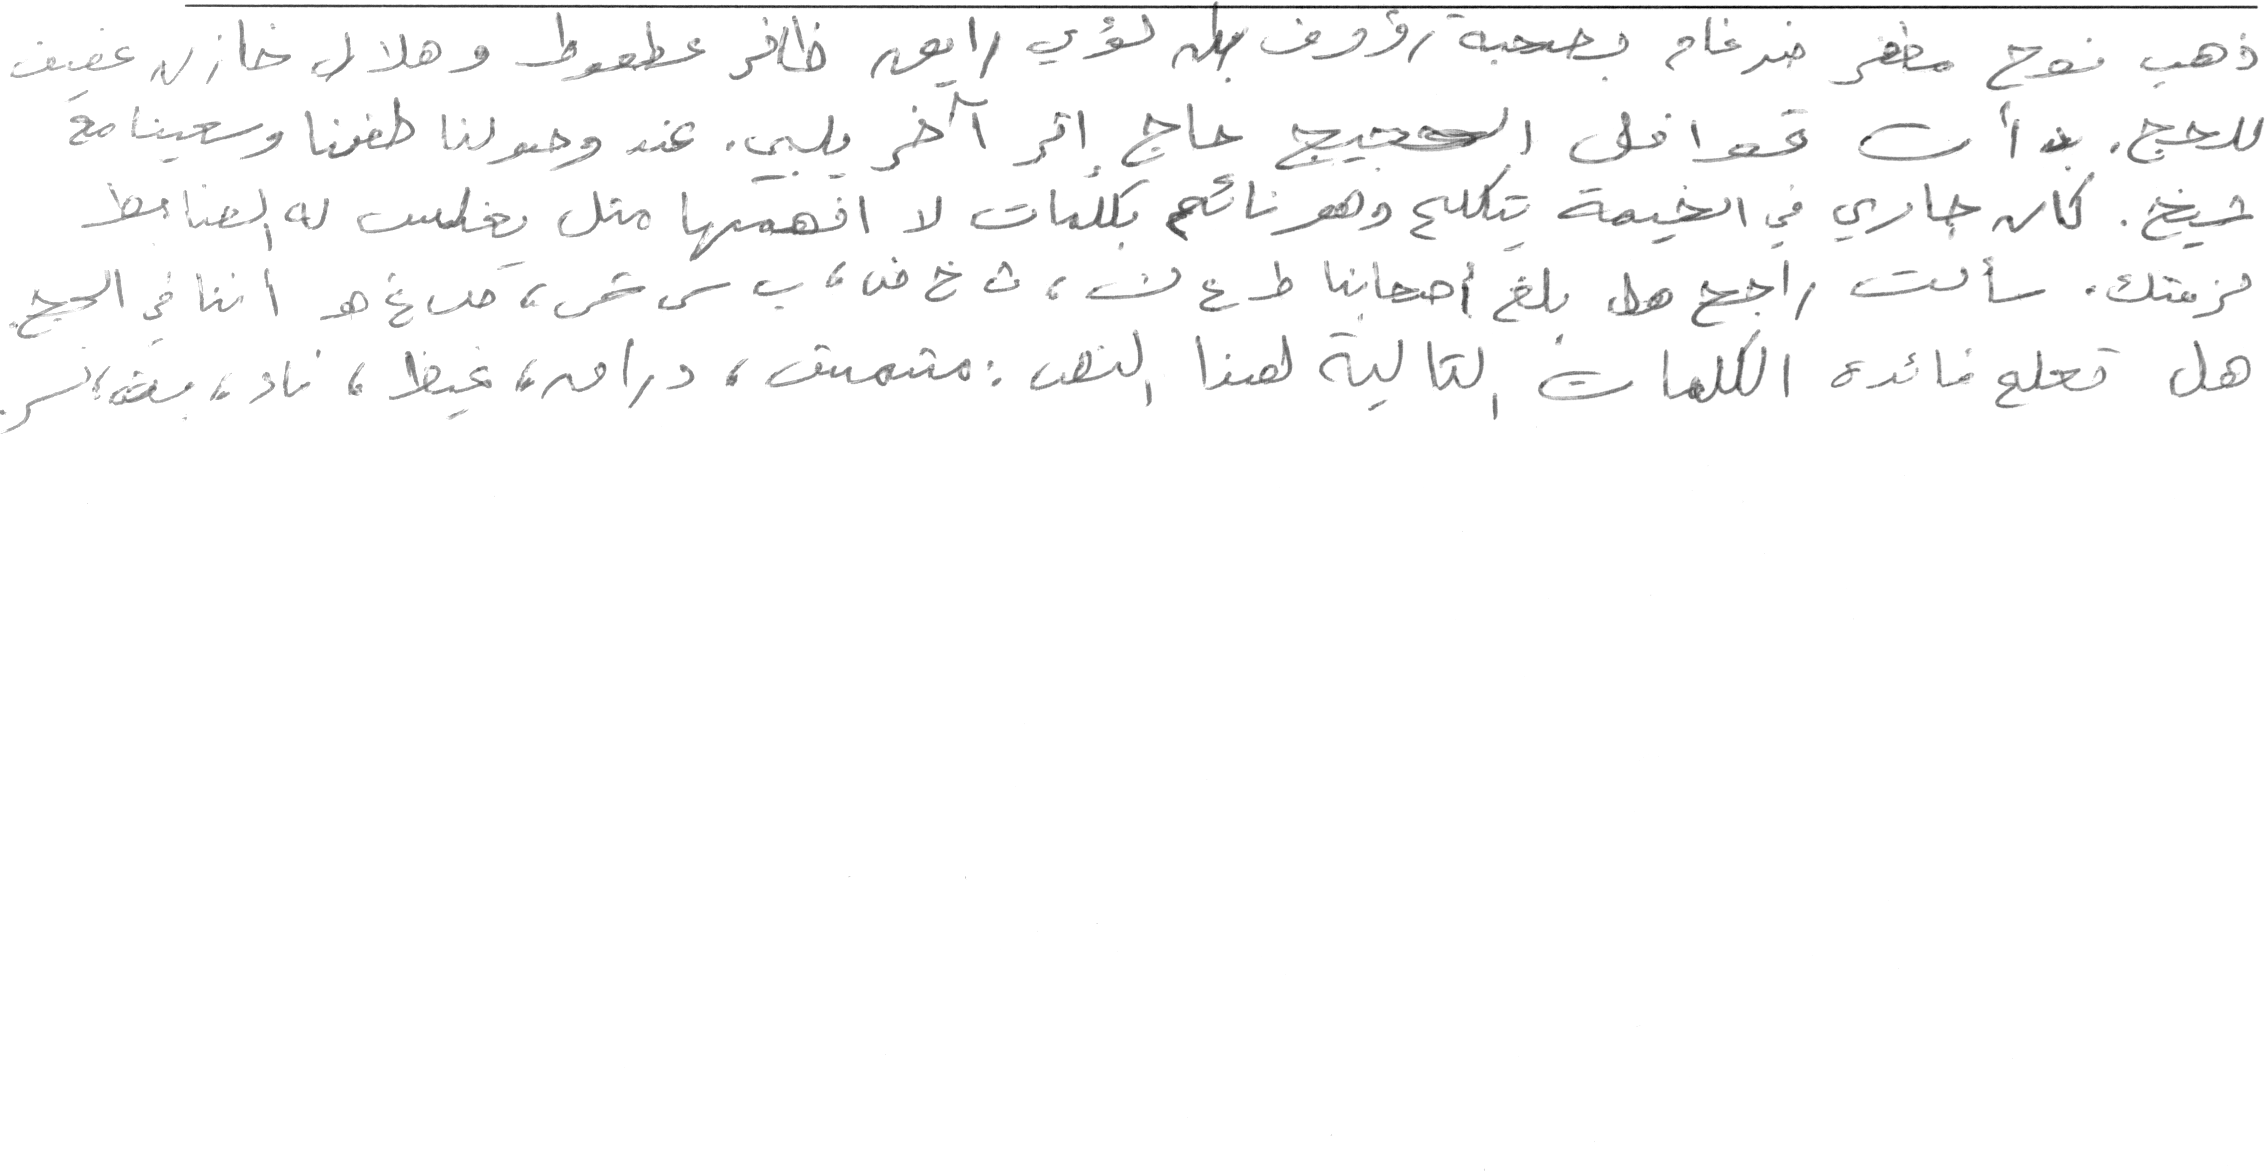 ذهب نوح مظفر ضرغام بصحبة رؤوف بهل لؤي رايق ظافر عطعوط وهلال خازن عفيف
للحج. بدأت قوافل الحجيج حاج إثر آخر يلبي. عند وصولنا طفنا وسعينا مع
شيخ. كان جاري في الخيمة يتكلم وهو نائم بكلمات لا افهمها مثل يغلس له الضابط
لزمتك. سألت راجح هل بلغ أصحابنا ط ع ث، ث خ ض، ب س ش، ص غ هو اننا في الحج.
هل تعلم فائدة الكلمات التالية لهذا النص: مشمش، دراق، غيظ، ناد،